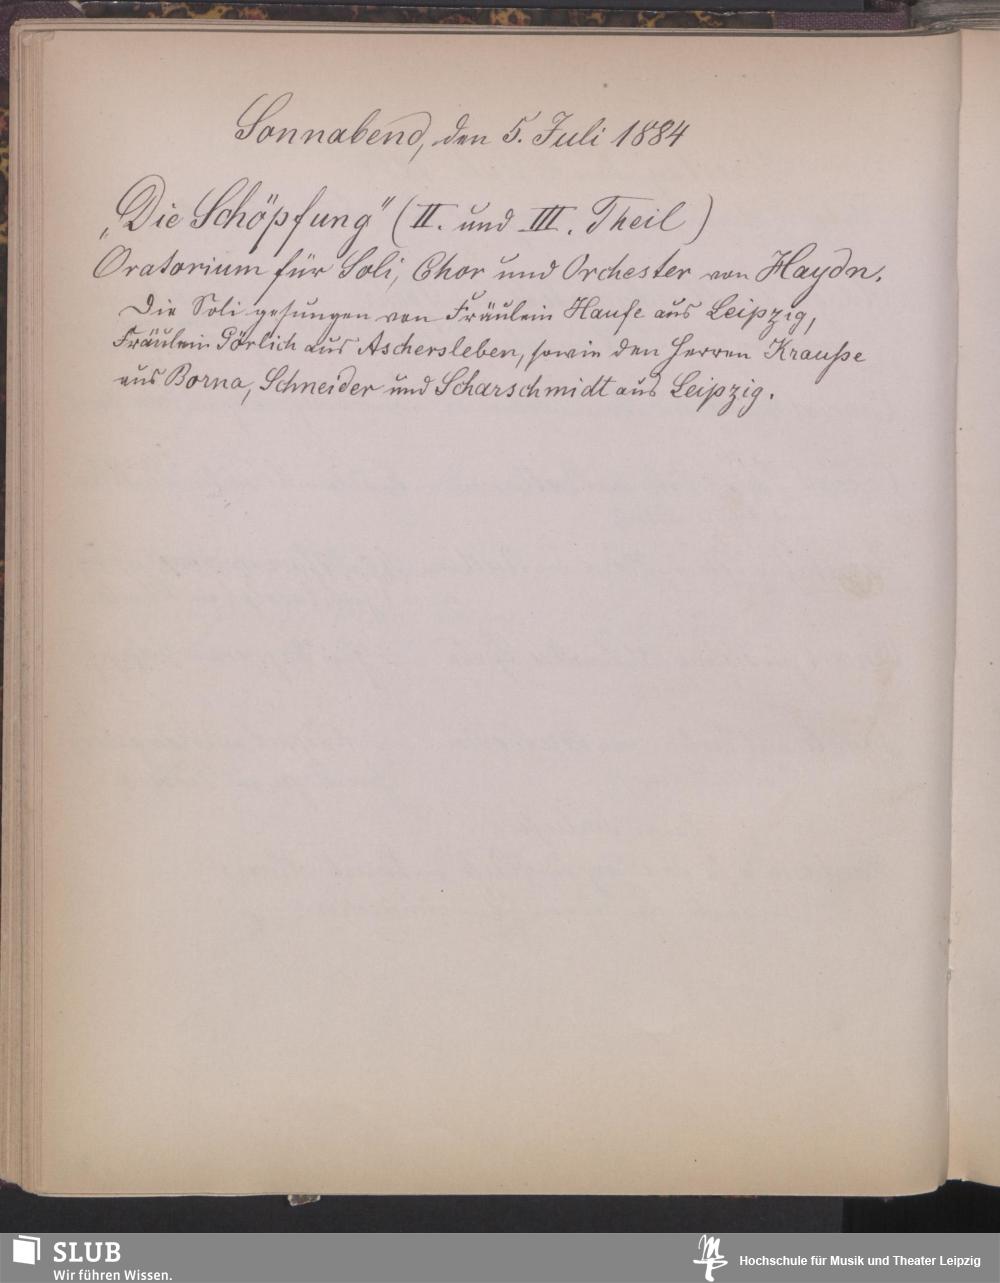 Sonnabend, den 5. Juli 1884
„Die Schöpfung" (II. und III. Theil)
Oratorium für Soli, Chor und Orchester von Haydn.
Die Soli gesungen von Fräulein Haufe aus Leipzig,
Fräulein Görlich aus Aschersleben, sowie den Herren Krauße
aus Borna, Schneider und Scharschmidt aus Leipzig.
SLUB
Wir führen Wissen.
Hochschule für Musik und Theater Leipzig